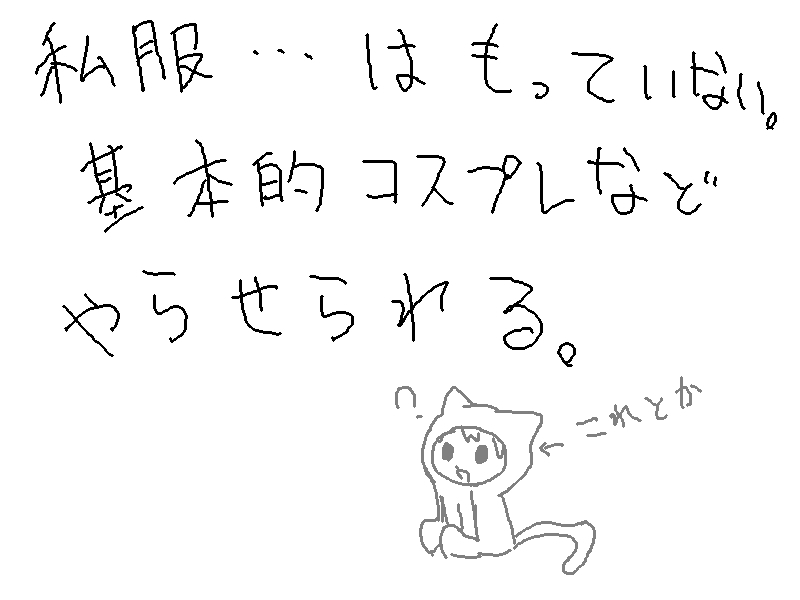 私服…はもっていない。
基本的コスプレなど
やらせられる。
?
←これとか